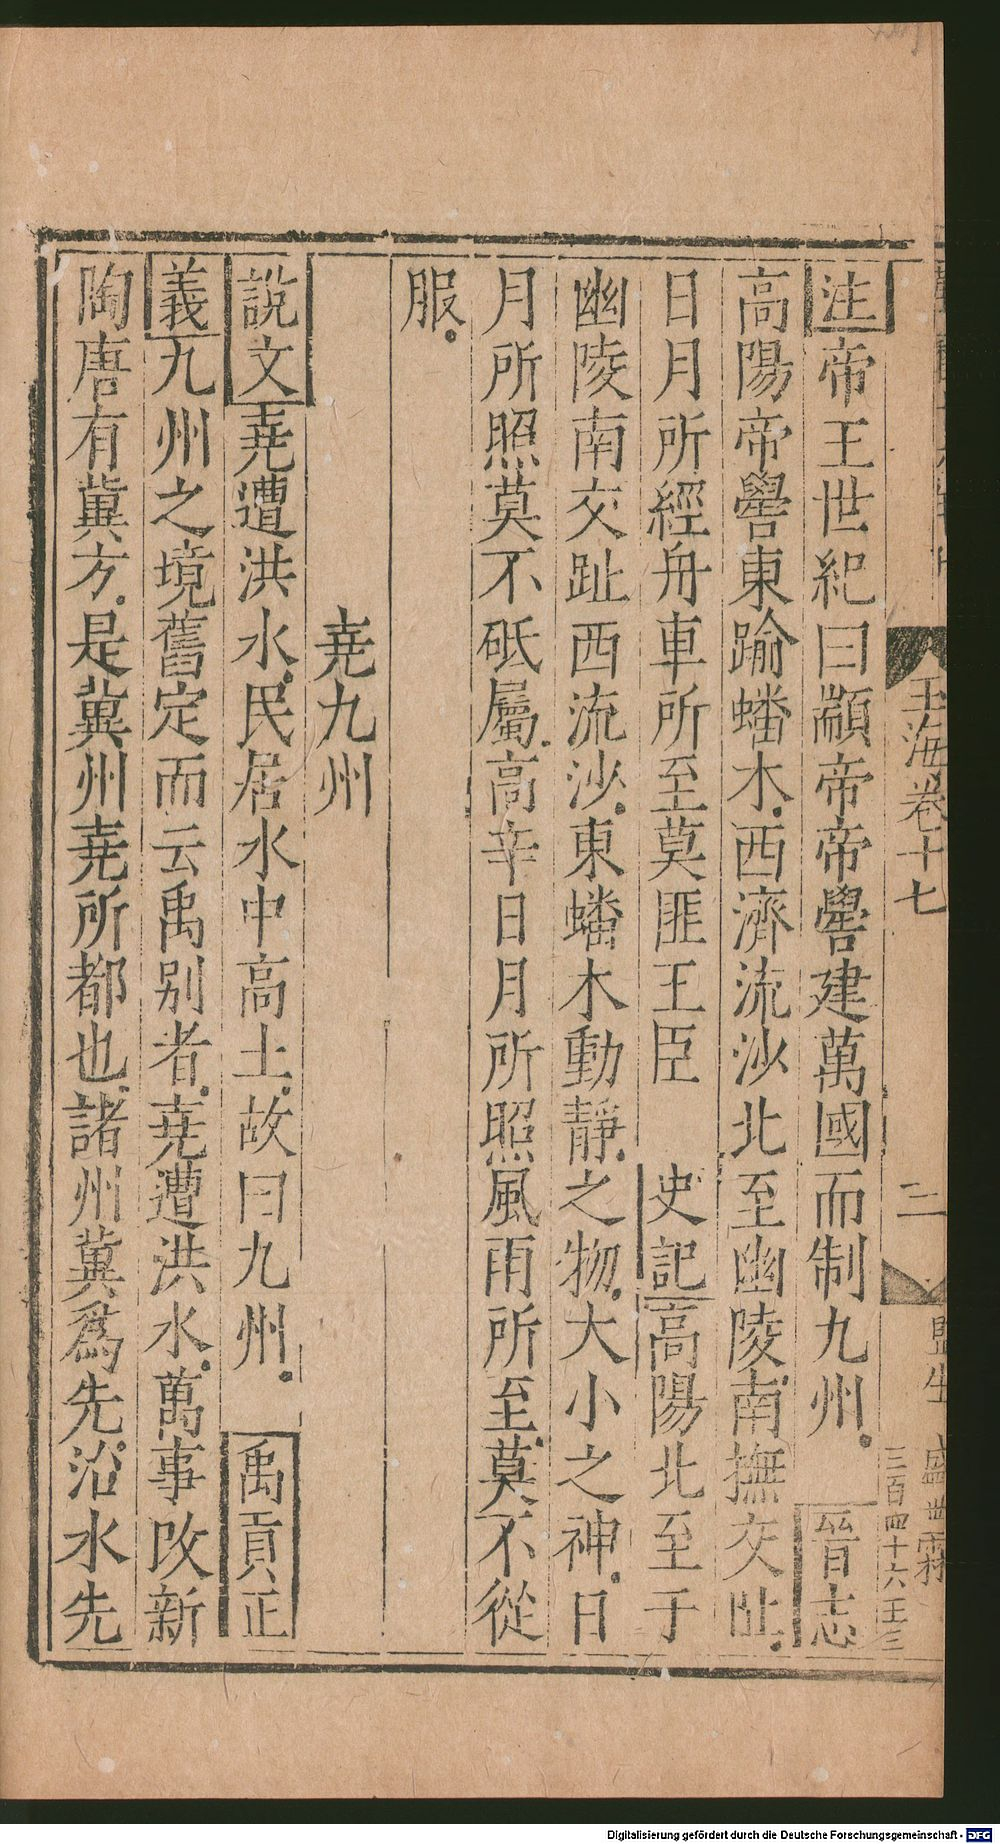 玉海卷十七
二
監生
三百四十六王三
注帝王世紀曰顓帝帝嚳建萬國而制九州晉志
高陽帝嚳東踰蟠木西濟流沙北至幽陵南撫交阯
日月所經舟車所至莫匪王臣 史記高陽北至于
幽陵南交趾西流沙東蟠木動靜之物大小之神日
月所照莫不砥屬高辛日月所照風雨所至莫不從
服
堯九州
說文堯遭洪水民居水中高土故曰九州 禹貢正
義九州之境舊定而云禹別者堯遭洪水萬事改新
陶唐有冀方是冀州堯所都也諸州冀爲先沿水先
Digitalisierung gefördert durch die Deutsche Forschungsgemeinschaft - DFG